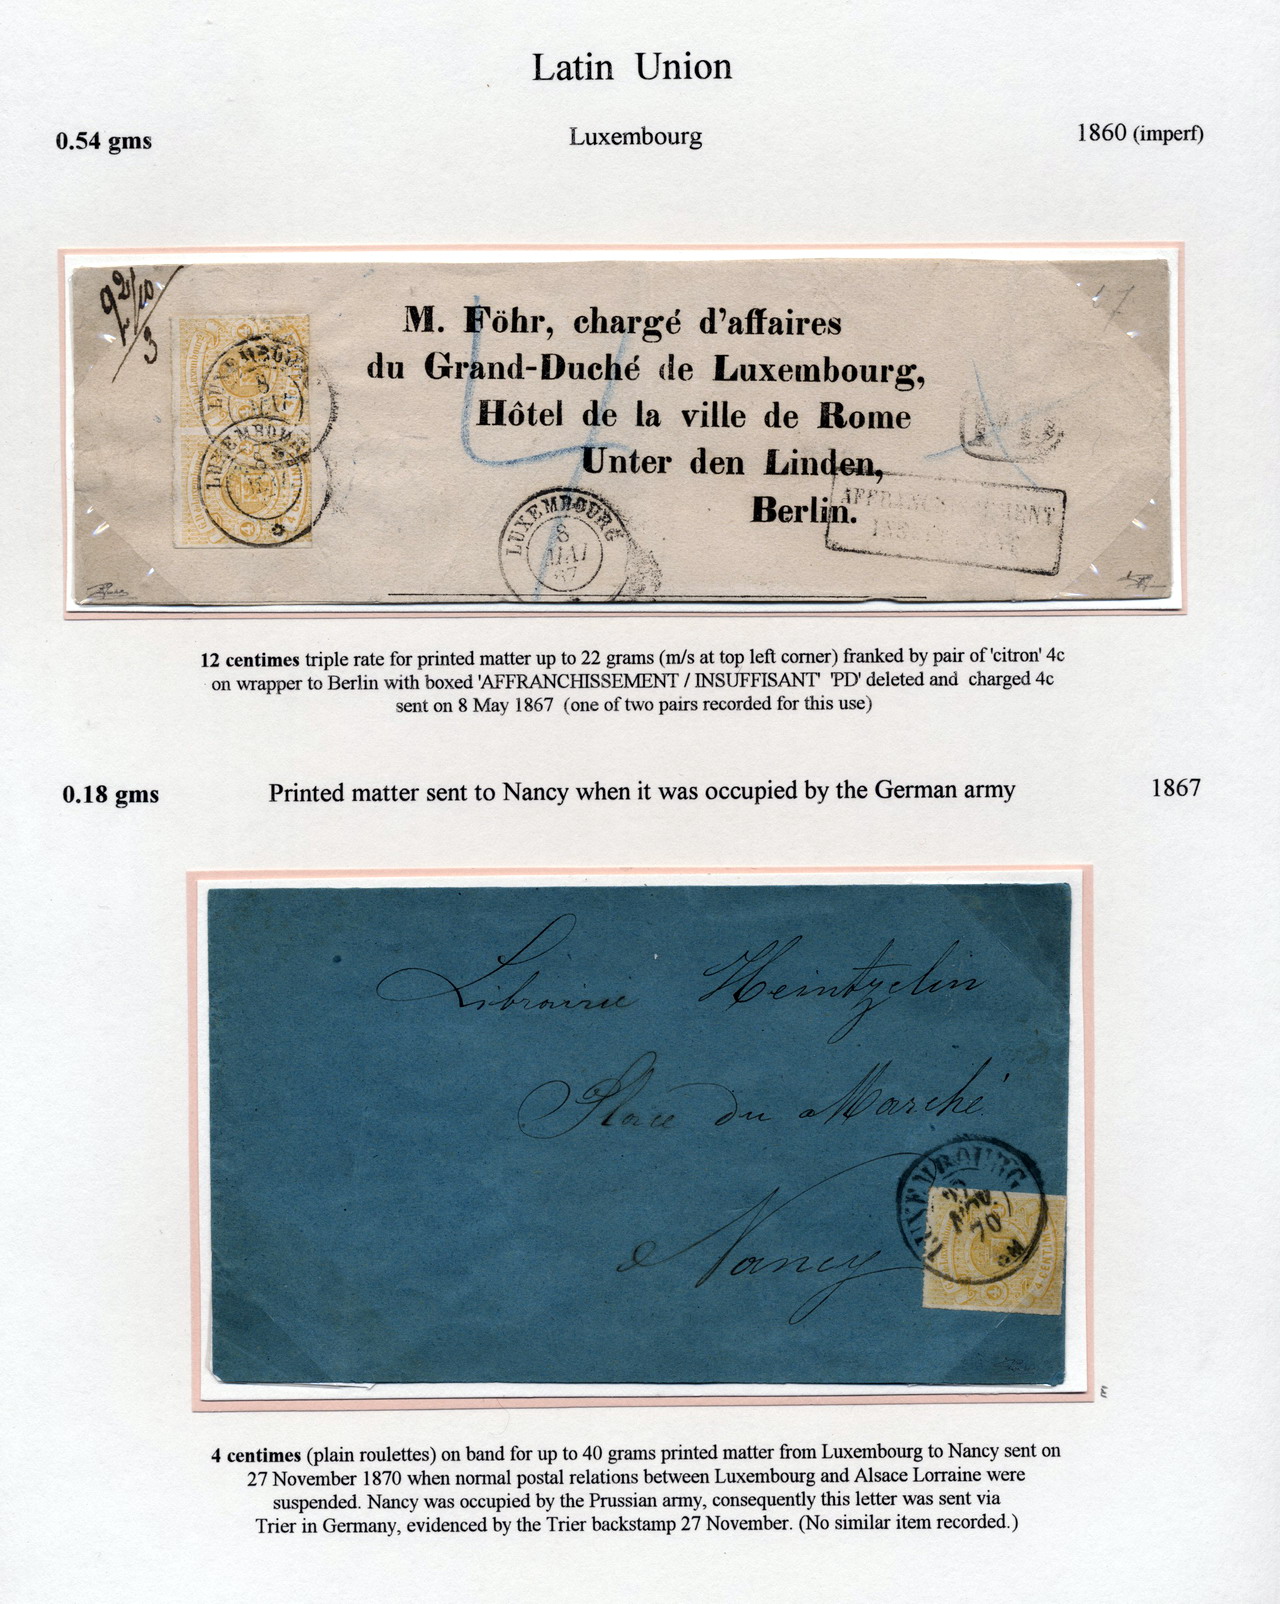 Latin Union
0.54 gms
Luxembourg
1860 (imperf)
M. Föhr, chargé d'affaires
du Grand-Duché de Luxembourg,
Hôtel de la ville de Rome
Unter den Linden,
Berlin.
LUXEMBOURG
8
MAI
LUXEMBOURG
8
MAI
LUXEMBOURG
8
MAI
67
PD
AFFRANCHISSEMENT
INSUFFISANT
12 centimes triple rate for printed matter up to 22 grams (m/s at top left corner) franked by pair of 'citron' 4c
on wrapper to Berlin with boxed 'AFFRANCHISSEMENT / INSUFFISANT' 'PD' deleted and charged 4c
sent on 8 May 1867 (one of two pairs recorded for this use)
0.18 gms
Printed matter sent to Nancy when it was occupied by the German army
1867
Librairie Heintzelin
Place du Marché
à Nancy
LUXEMBOURG
27
NOV.
70
4 CENTIMES
E
4 centimes (plain roulettes) on band for up to 40 grams printed matter from Luxembourg to Nancy sent on
27 November 1870 when normal postal relations between Luxembourg and Alsace Lorraine were
suspended. Nancy was occupied by the Prussian army, consequently this letter was sent via
Trier in Germany, evidenced by the Trier backstamp 27 November. (No similar item recorded.)